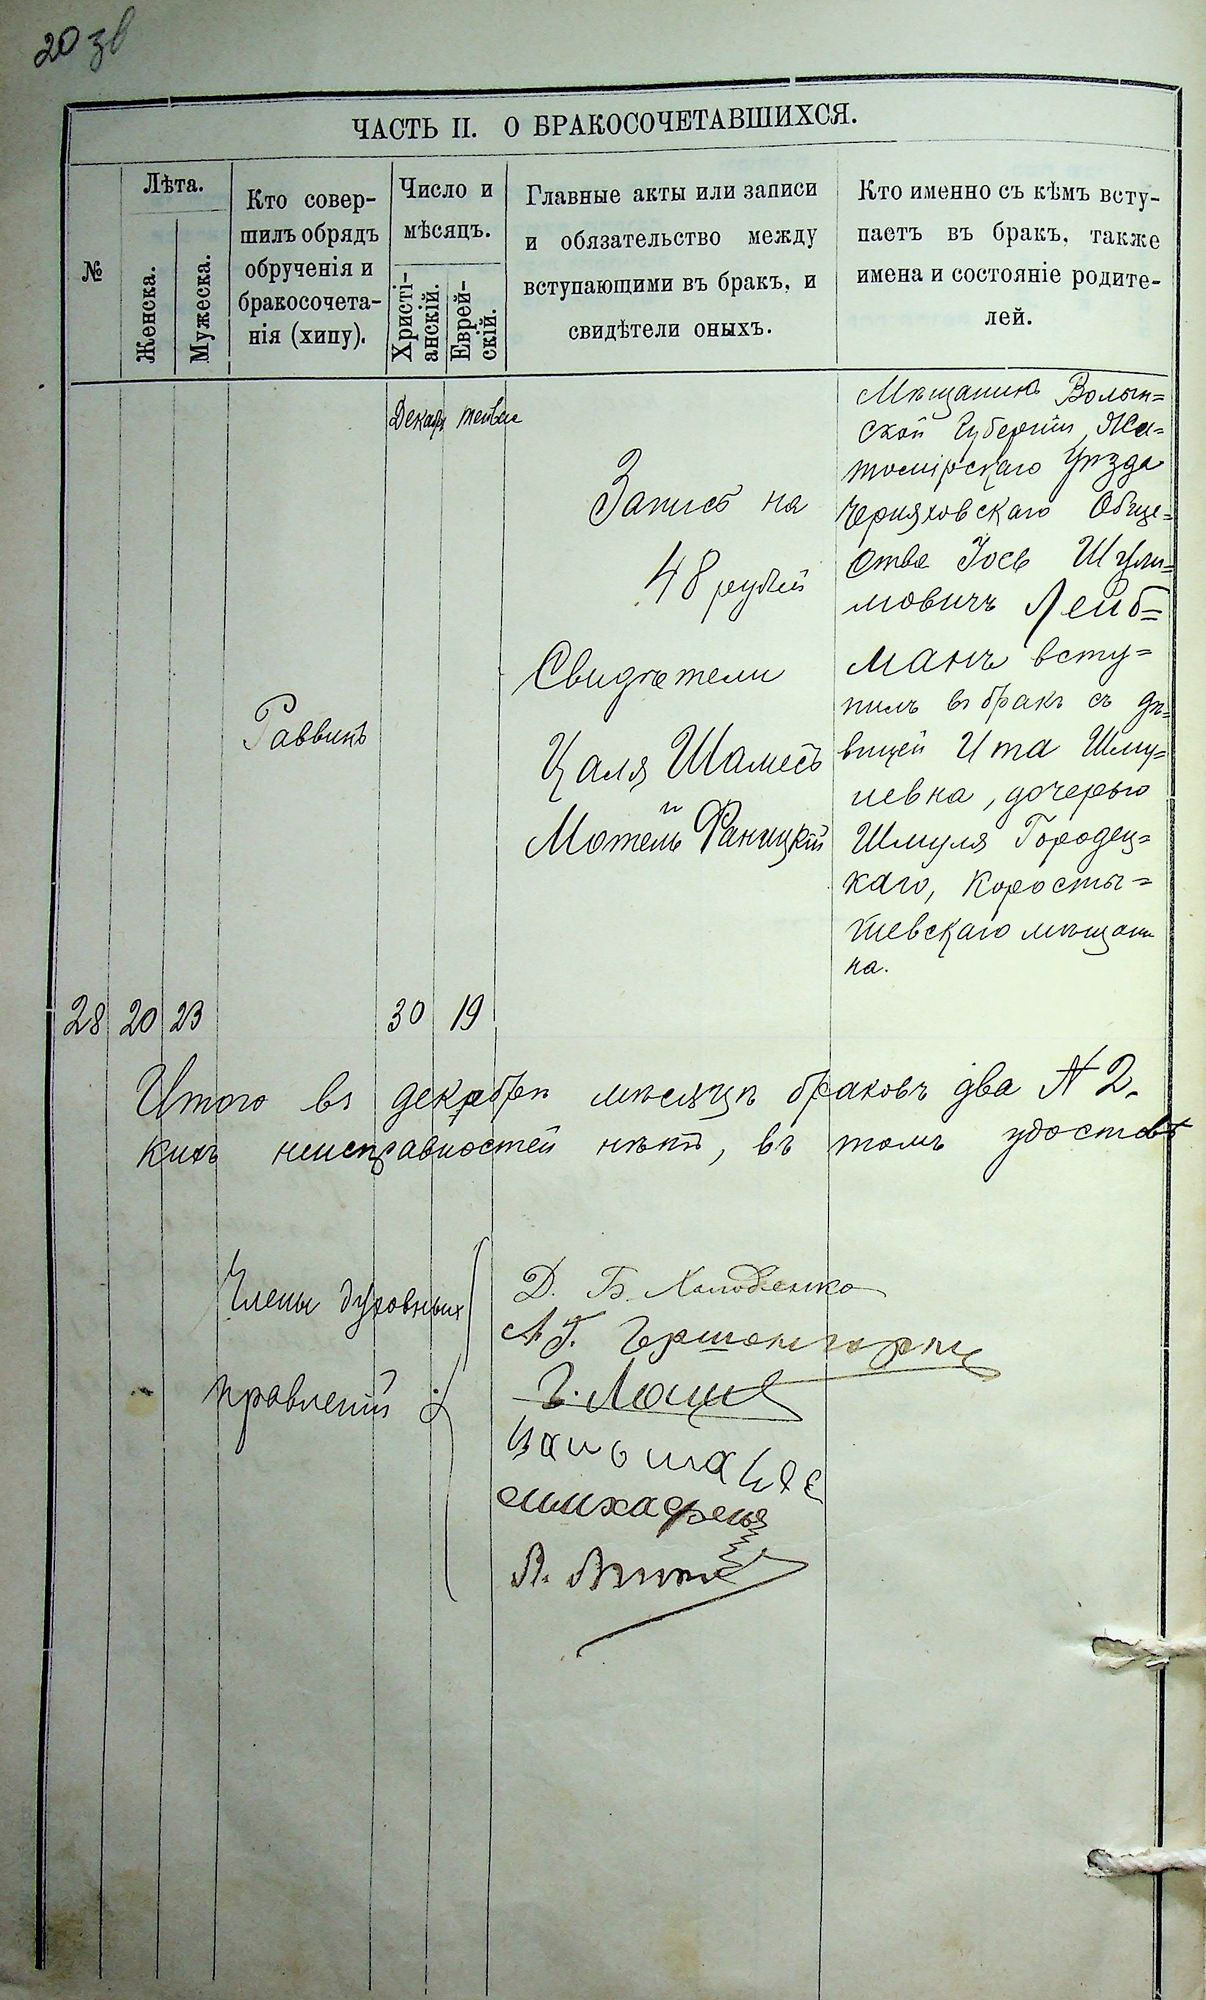 20 зв
ЧАСТЬ II. О БРАКОСОЧЕТАВШИХСЯ.
№
Лѣта.
Женска.
Мужеска.
Кто совер-
шилъ обрядъ
обрученія и
бракосочета-
нія (хипу).
Число и
мѣсяцъ.
Христі-
анскій.
Еврей-
скій.
Главные акты или записи
и обязательство между
вступающими въ бракъ, и
свидѣтели оныхъ.
Кто именно съ кѣмъ всту-
паетъ въ бракъ, также
имена и состояніе родите-
лей.
28
20
23
Раввинъ
Декабр
тейвес
30
19
Запись на
48 рублей
Свидѣтели
Цаля Шамесъ
и
Мотель Фаницкій
Мѣщанинъ Волын=
ской Губерніи Жи=
томірскаго Уѣзда
Черняховскаго Обще=
ства Іось Шули=
мовичъ Лейб=
манъ всту=
пилъ въ бракъ съ дѣ=
вицей Ита Шму=
левна, дочерью
Шмуля Городец=
каго, Коросты=
шевскаго мѣщани
на.
Итого въ декабрѣ мѣсяцѣ браковъ два № 2.
кихъ неисправностей нѣтъ, въ томъ удостов
Члены духовныхъ
правленій:
Д. Б. Холоденко